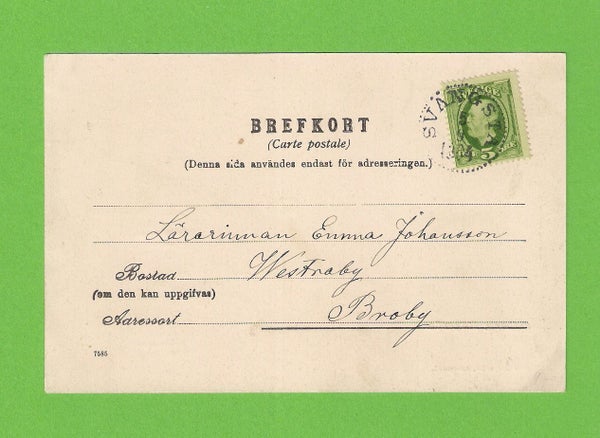 BREFKORT
(Carte postale)
(Denna sida användes endast för adresseringen.)
SVÄNGSTA
5
Lärarinnan Emma Johansson
Bostad Westraby
(om den kan uppgifvas)
Adressort Broby
7585